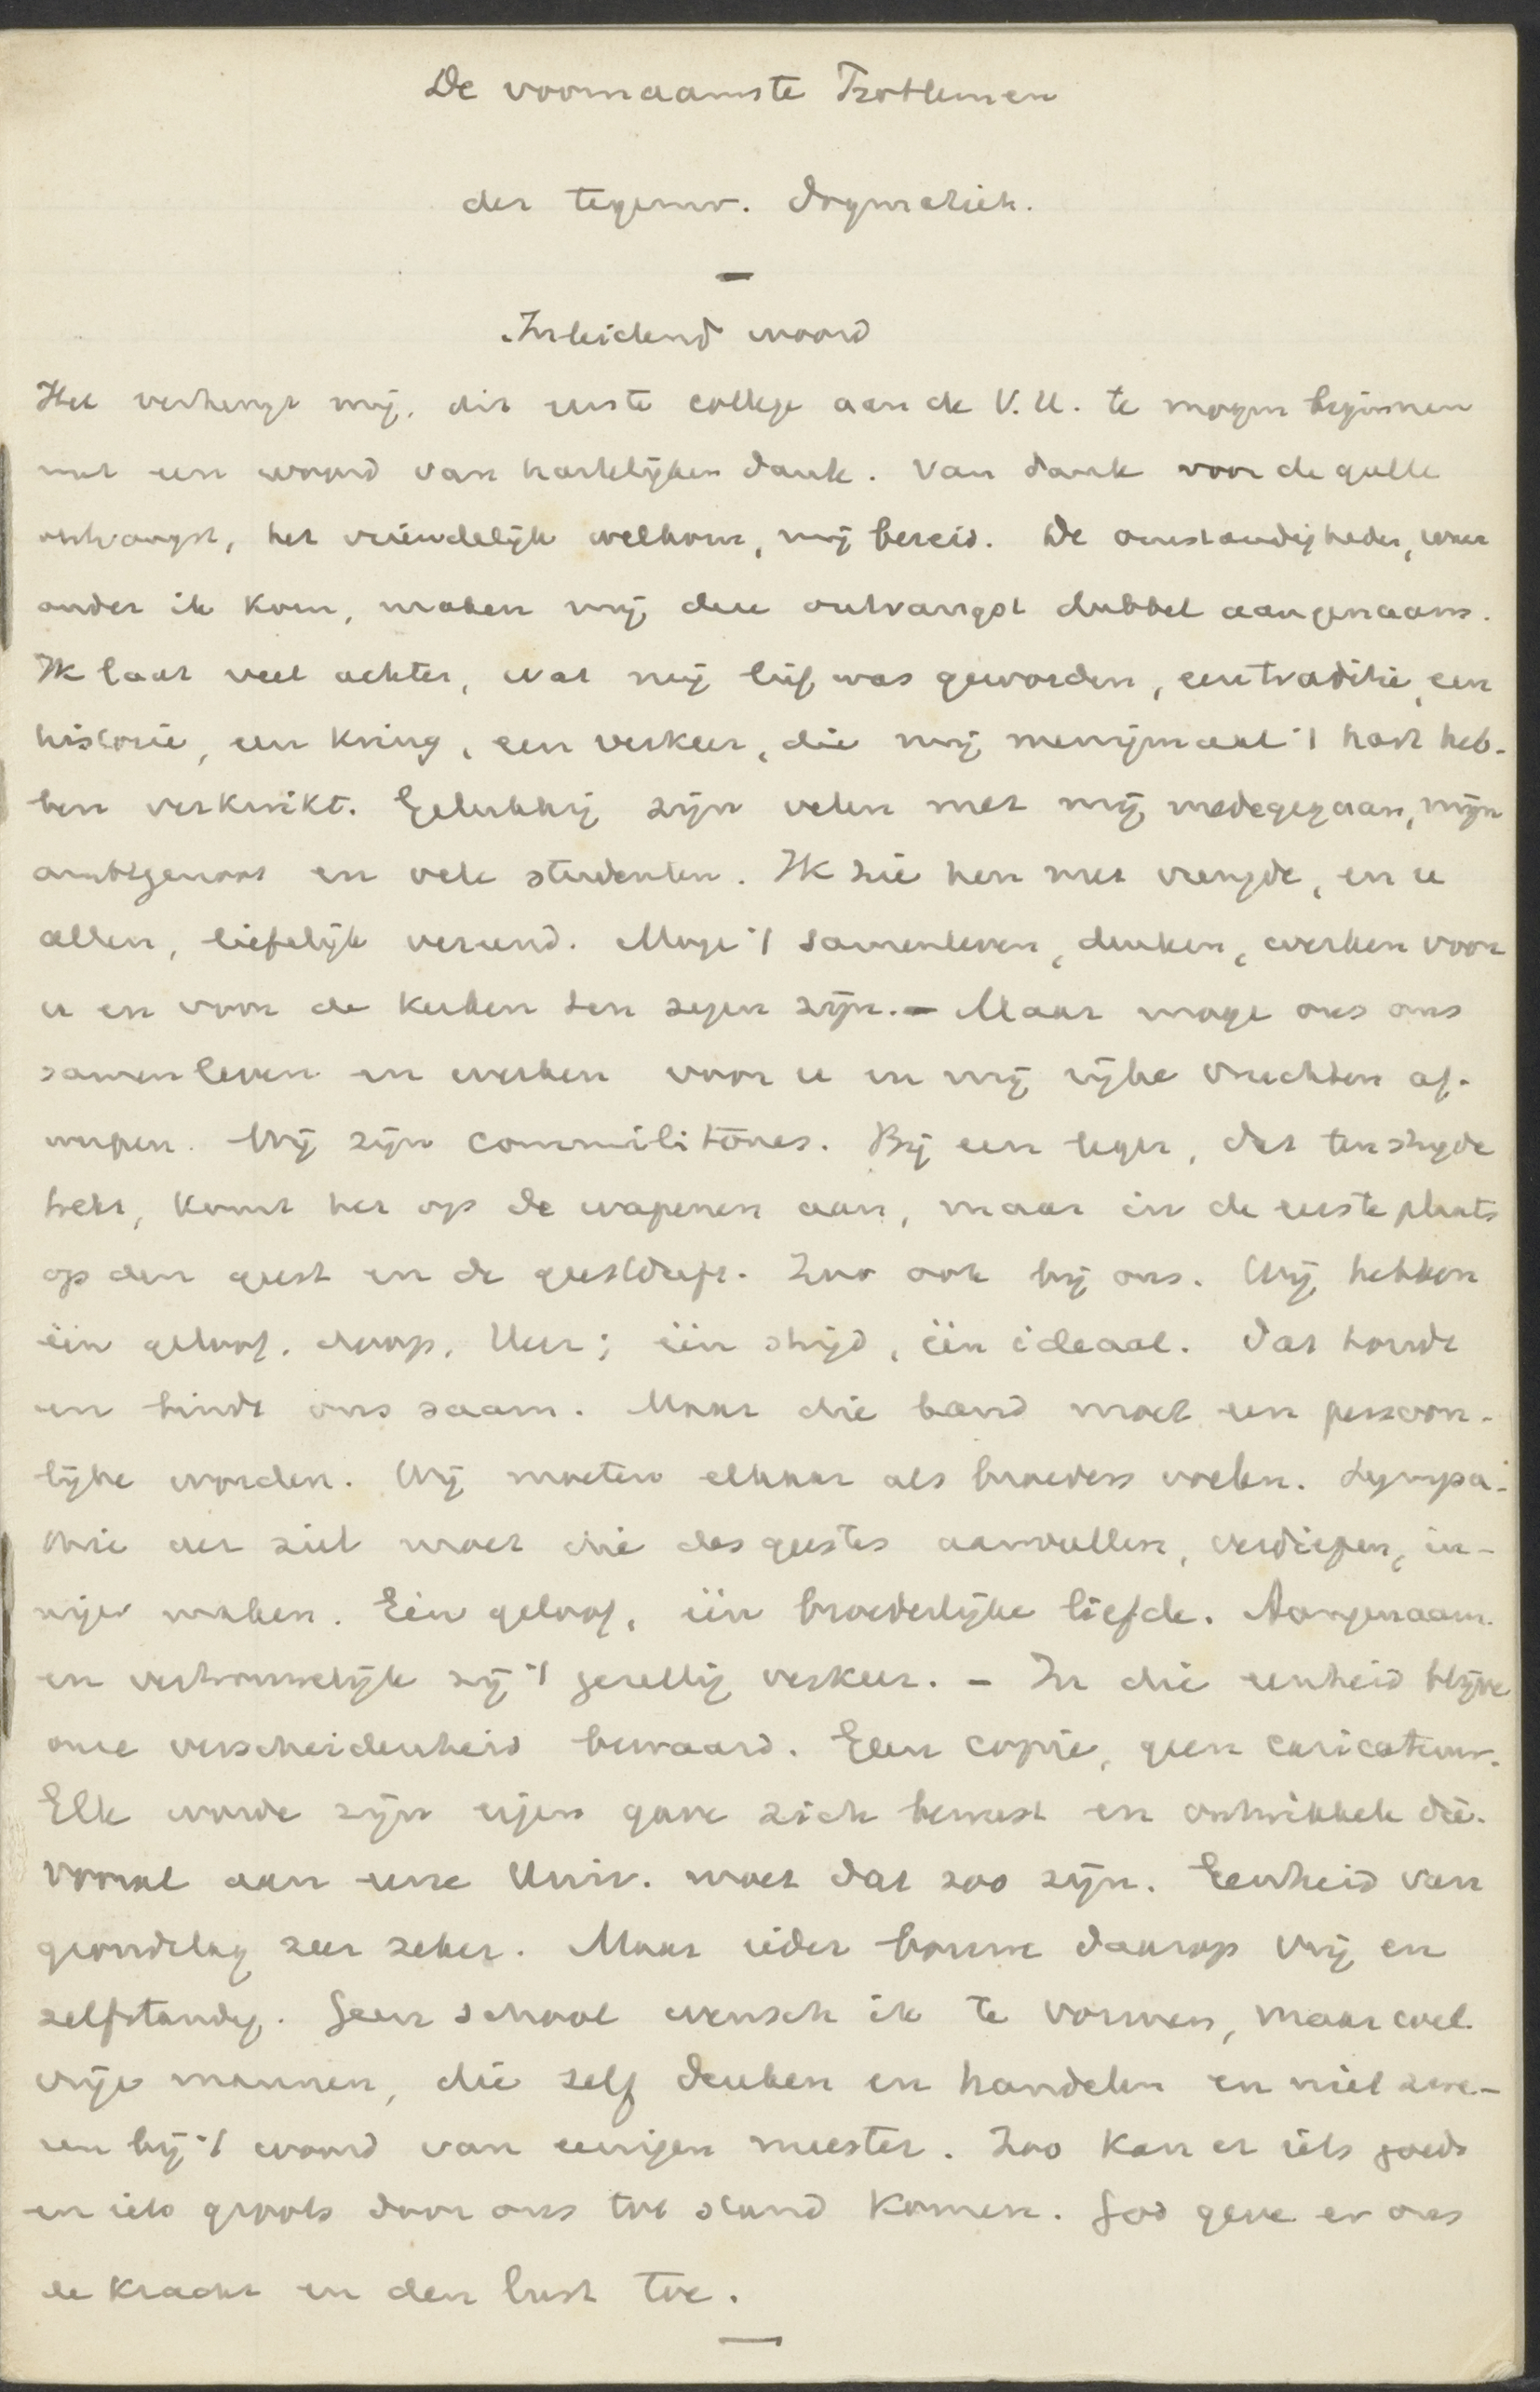 De voornaamste Problemen
der tegenw. dogmatiek.
Inleidend woord
Het verheugt mij, dit eerste college aan de V.U. te mogen beginnen
met een woord van hartelijken dank. Van dank voor de gulle
ontvangst, het vriendelijk welkom, mij bereid. De omstandigheden, waar
onder ik kom, maken mij deze ontvangst dubbel aangenaam.
Ik laat veel achter, wat mij lief was geworden, een traditie, een
historie, een kring, een verkeer, die mij menigmaal 't hart heb-
ben verkwikt. Gelukkig zijn velen met mij medegegaan, mijn
ambtgenoot en vele studenten. Ik zie hen met vreugde, en u
allen, liefelijk vereend. Moge 't samenleven, denken, werken voor
u en voor de kerken ten zegen zijn. - Maar moge ons ons
samenleven en werken voor u en mij rijke vruchten af-
werpen. Wij zijn commilitōnes. Bij een leger, dat ten strijde
trekt, komt het op de wapenen aan, maar in de eerste plaats
op den geest en de geestdrift. Zoo ook bij ons. Wij hebben
één geloof, doop, Heer; één strijd, één ideaal. Dat houdt
en bindt ons saam. Maar die band moet een persoon-
lijke worden. Wij moeten elkaar als broeders voelen. Sympa-
thie der ziel moet die des geestes aanvullen, verdiepen, in-
niger maken. Eén geloof, één broederlijke liefde. Aangenaam
en vertrouwelijk zij 't gezellig verkeer. - In die eenheid blijve
onze verscheidenheid bewaard. Geen copie, geen caricatuur.
Elk worde zijn eigen gave zich bewust en ontwikkele die.
Vooral aan eene Univ. moet dat zoo zijn. Eenheid van
grondslag zeer zeker. Maar ieder bouwe daarop vrij en
zelfstandig. Geen school wensch ik te vormen, maar wel
vrije mannen, die zelf denken en handelen en niet zwe-
ren bij 't woord van eenigen meester. Zoo kan er iets goeds
en iets groots door ons tot stand komen. God geve er ons
de kracht en den lust toe.